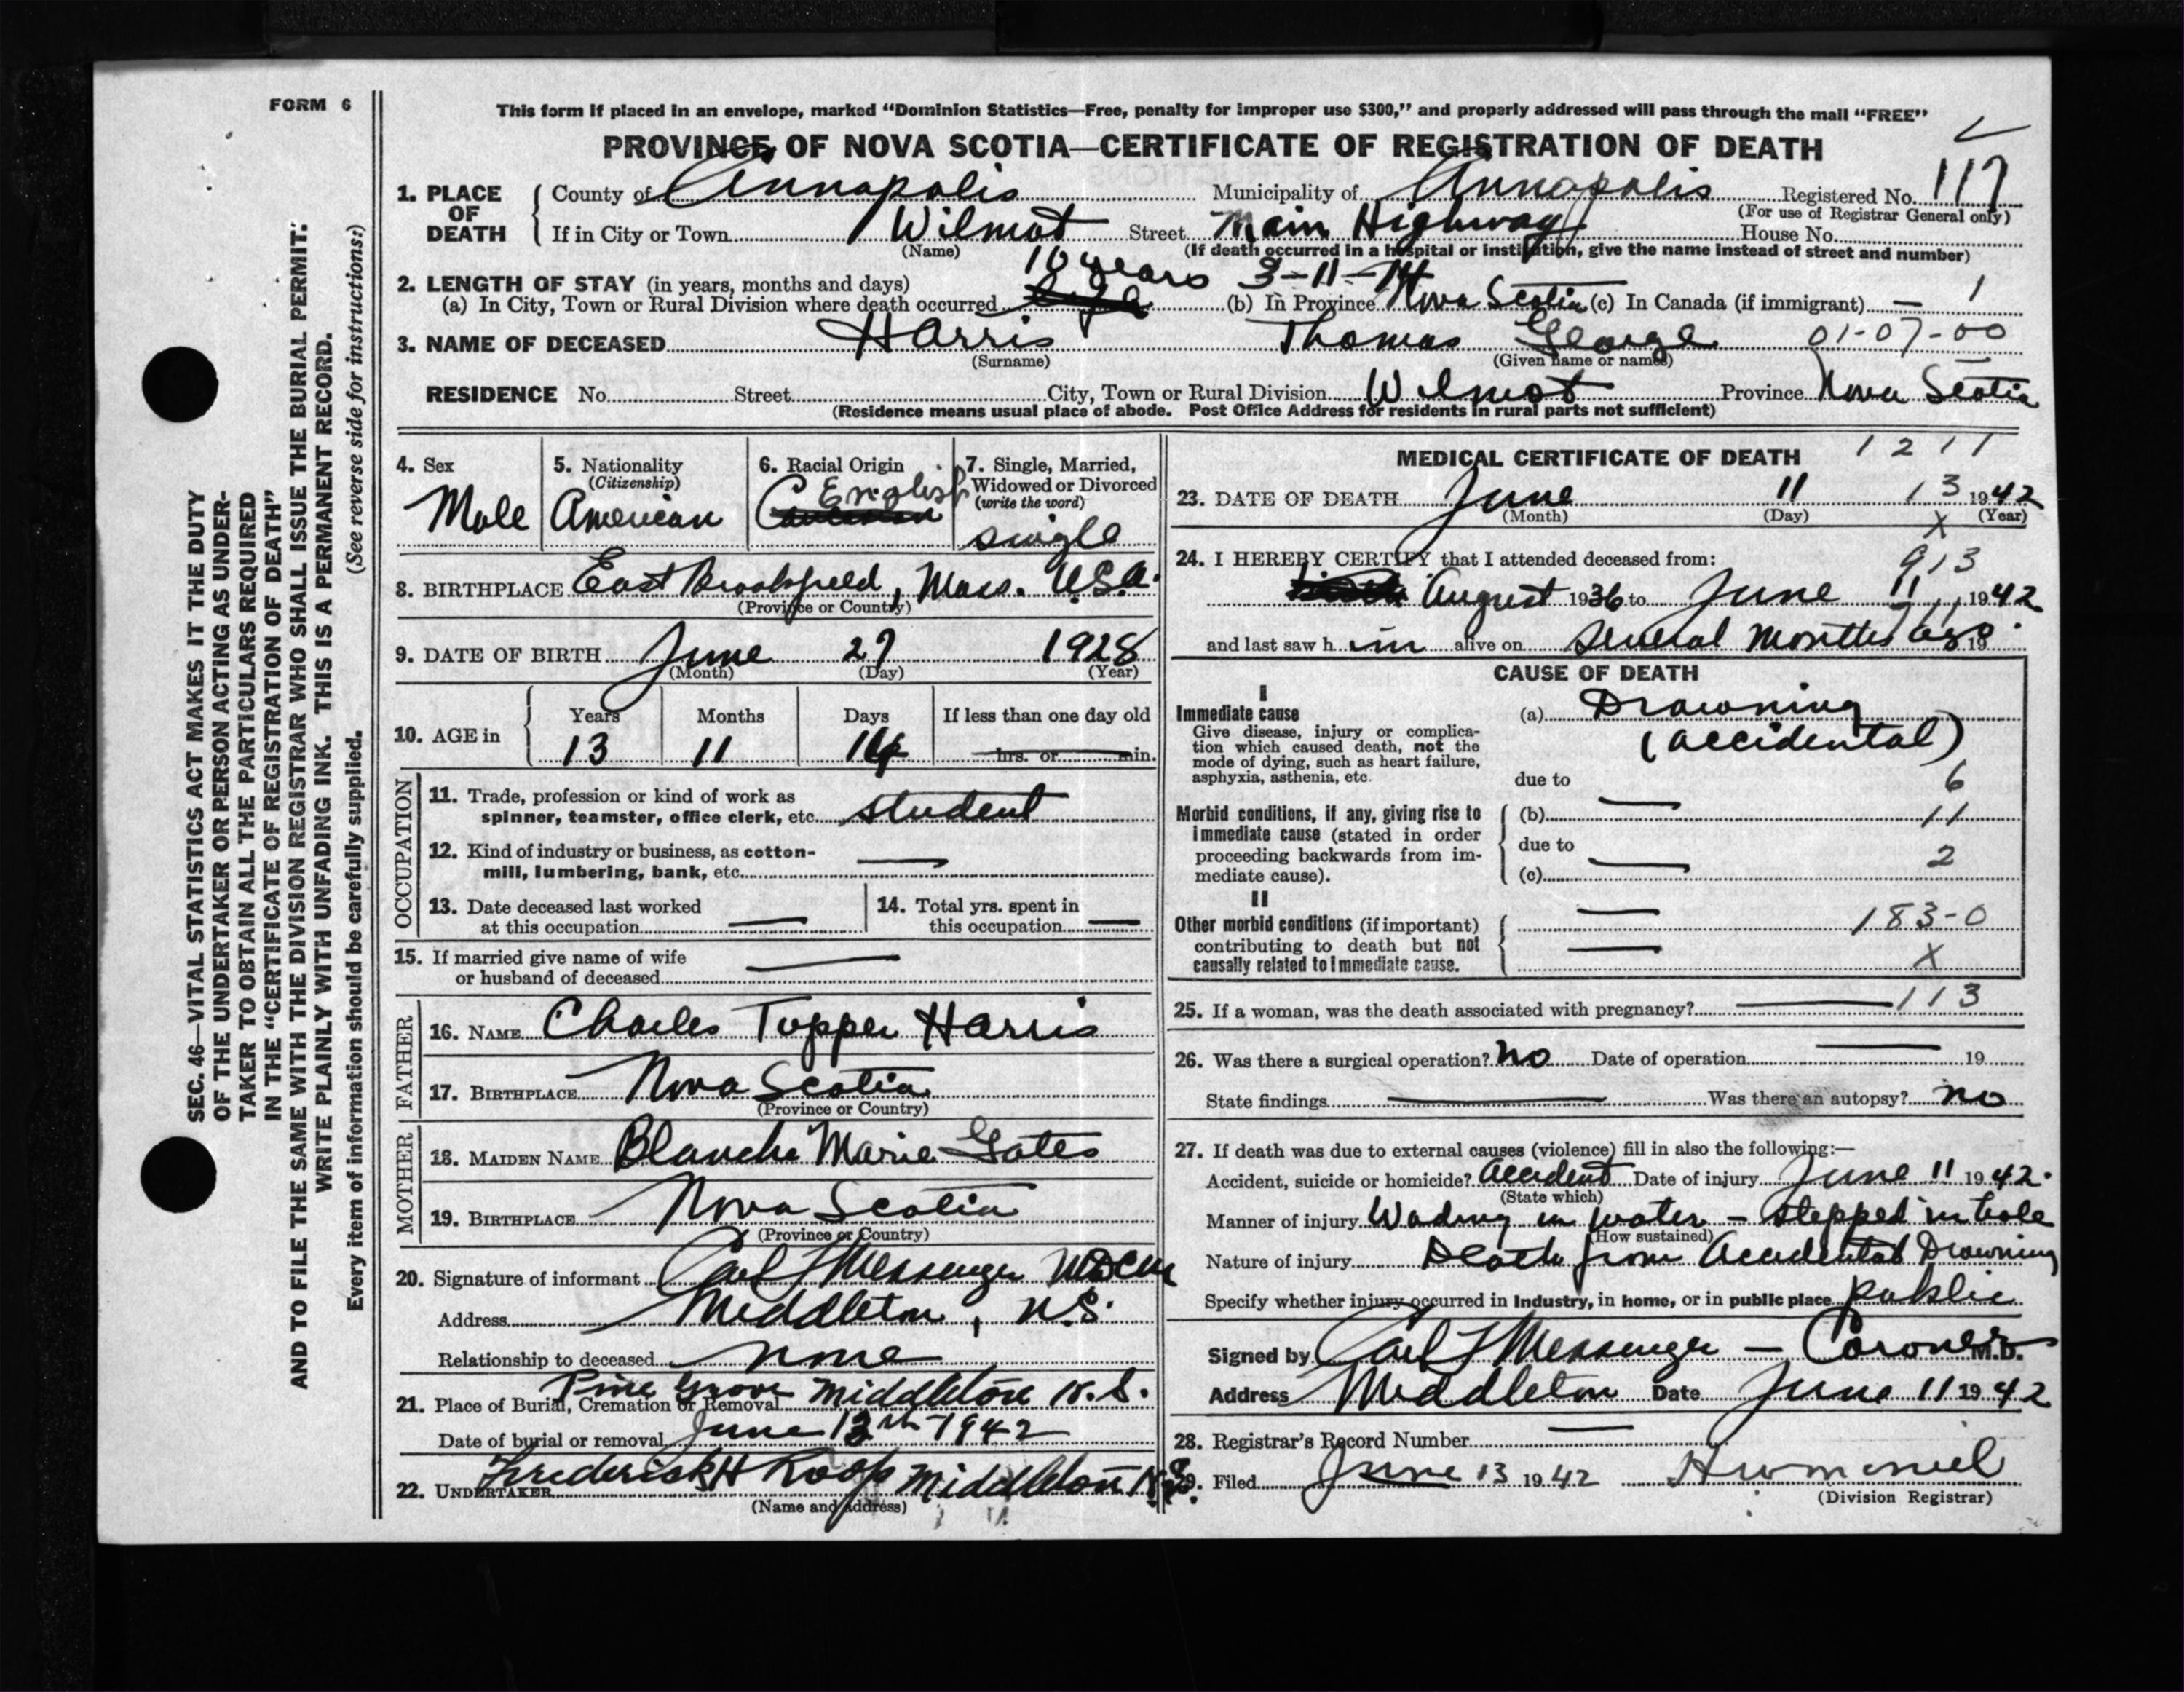 FORM 6
This form if placed in an envelope, marked "Dominion Statistics—Free, penalty for improper use $300," and properly addressed will pass through the mail "FREE"
PROVINCE OF NOVA SCOTIA—CERTIFICATE OF REGISTRATION OF DEATH
1. PLACE OF DEATH
County of Annapolis Municipality of Annapolis Registered No. 117
(For use of Registrar General only)
If in City or Town Wilmot Street Main Highway House No.
(Name) (If death occurred in a hospital or institution, give the name instead of street and number)
2. LENGTH OF STAY (in years, months and days) 10 years 3-11-14
(a) In City, Town or Rural Division where death occurred (b) In Province Nova Scotia (c) In Canada (if immigrant) — 1
3. NAME OF DECEASED Harris Thomas George 01-07-00
(Surname) (Given name or names)
RESIDENCE No. Street City, Town or Rural Division Wilmot Province Nova Scotia
(Residence means usual place of abode. Post Office Address for residents in rural parts not sufficient)
4. Sex
Male
5. Nationality
(Citizenship)
American
6. Racial Origin
English
7. Single, Married,
Widowed or Divorced
(write the word)
single
8. BIRTHPLACE East Brookfield, Mass. U.S.A.
(Province or Country)
9. DATE OF BIRTH June 27 1928
(Month) (Day) (Year)
10. AGE in
Years Months Days If less than one day old
13 11 14 hrs. or min.
OCCUPATION
11. Trade, profession or kind of work as
spinner, teamster, office clerk, etc. student
12. Kind of industry or business, as cotton-
mill, lumbering, bank, etc. —
13. Date deceased last worked
at this occupation —
14. Total yrs. spent in
this occupation —
15. If married give name of wife
or husband of deceased —
FATHER
16. NAME Charles Tupper Harris
17. BIRTHPLACE Nova Scotia
(Province or Country)
MOTHER
18. MAIDEN NAME Blanche Marie Gates
19. BIRTHPLACE Nova Scotia
(Province or Country)
20. Signature of informant Carl F Messenger MDCM
Address Middleton, N.S.
Relationship to deceased none
21. Place of Burial, Cremation or Removal Pine Grove Middleton N.S.
Date of burial or removal June 13th 1942
22. UNDERTAKER Frederick H Roop Middleton N.S.
(Name and address)
MEDICAL CERTIFICATE OF DEATH 1 2 1 1
23. DATE OF DEATH June 11 13 1942
(Month) (Day) (Year)
X
24. I HEREBY CERTIFY that I attended deceased from: 913
August 1936 to June 11 1942
and last saw him alive on several months ago 19
CAUSE OF DEATH
I
Immediate cause
Give disease, injury or complica-
tion which caused death, not the
mode of dying, such as heart failure,
asphyxia, asthenia, etc.
(a) Drowning
(accidental)
due to 6
Morbid conditions, if any, giving rise to
immediate cause (stated in order
proceeding backwards from im-
mediate cause).
(b) — 11
due to
(c) — 2
II
Other morbid conditions (if important)
contributing to death but not
causally related to immediate cause.
— 183-0
— X
25. If a woman, was the death associated with pregnancy? — 113
26. Was there a surgical operation? no Date of operation — 19
State findings — Was there an autopsy? no
27. If death was due to external causes (violence) fill in also the following:—
Accident, suicide or homicide? Accident Date of injury June 11 1942.
(State which)
Manner of injury Wading in water - stepped in hole
(How sustained)
Nature of injury Death from Accidental Drowning
Specify whether injury occurred in Industry, in home, or in public place public
Signed by Carl F Messenger — Coroner M.D.
Address Middleton Date June 11 1942
28. Registrar's Record Number —
29. Filed June 13 1942
(Division Registrar)
SEC. 46—VITAL STATISTICS ACT MAKES IT THE DUTY
OF THE UNDERTAKER OR PERSON ACTING AS UNDER-
TAKER TO OBTAIN ALL THE PARTICULARS REQUIRED
IN THE "CERTIFICATE OF REGISTRATION OF DEATH"
AND TO FILE THE SAME WITH THE DIVISION REGISTRAR WHO SHALL ISSUE THE BURIAL PERMIT.
WRITE PLAINLY WITH UNFADING INK. THIS IS A PERMANENT RECORD.
Every item of information should be carefully supplied. (See reverse side for instructions:)